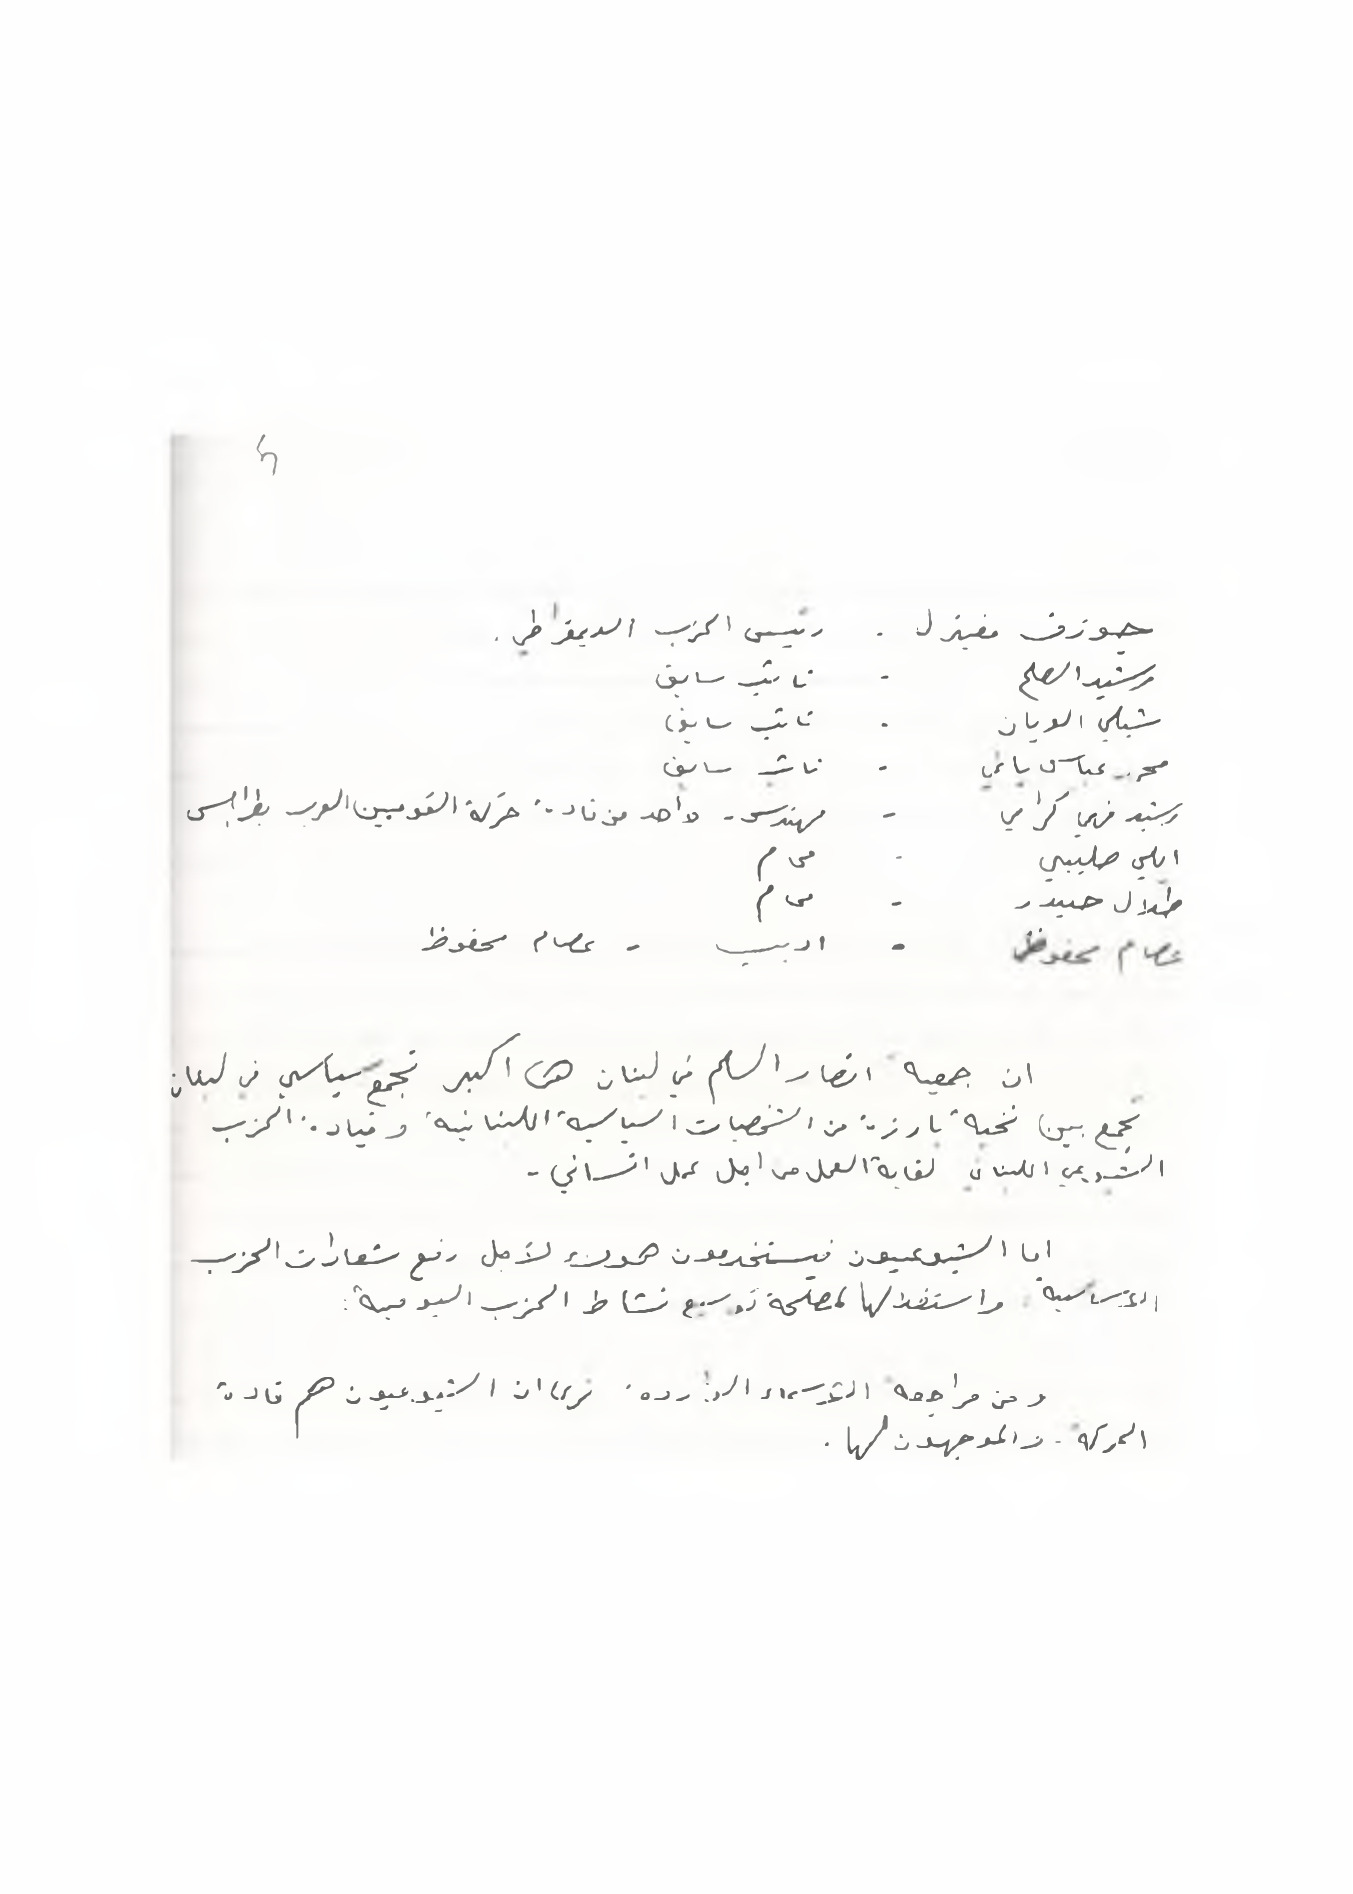 ٤
جوزف مغيزل - رئيس الحزب الديمقراطي .
رشيد الصلح - نائب سابق
شبلي العريان - نائب سابق
محمد عباس ياغي - نائب سابق
رشيد فهمي كرامي - مهندس - واحد من قادة حركة القوميين العرب بطرابلس
ايلي صليبي -
طلال حيدر -
عصام محفوظ - اديب - عصام محفوظ
ان جمعية انصار السلم في لبنان هي اكبر تجمع سياسي في لبنان
تجمع بين نخبة بارزة من الشخصيات السياسية اللبنانية وقيادة الحزب
الشيوعي اللبناني لغاية العمل من اجل عمل انساني -
اما الشيوعيون فيستخدمون هؤلاء لأجل رفع شعارات الحزب
الأساسية واستغلالها لمصلحة توسيع نشاط الحزب اليومية .
ومن مراجعة الأسماء الواردة نرى ان الشيوعيون هم قادة
الحركة - والموجهون لها .